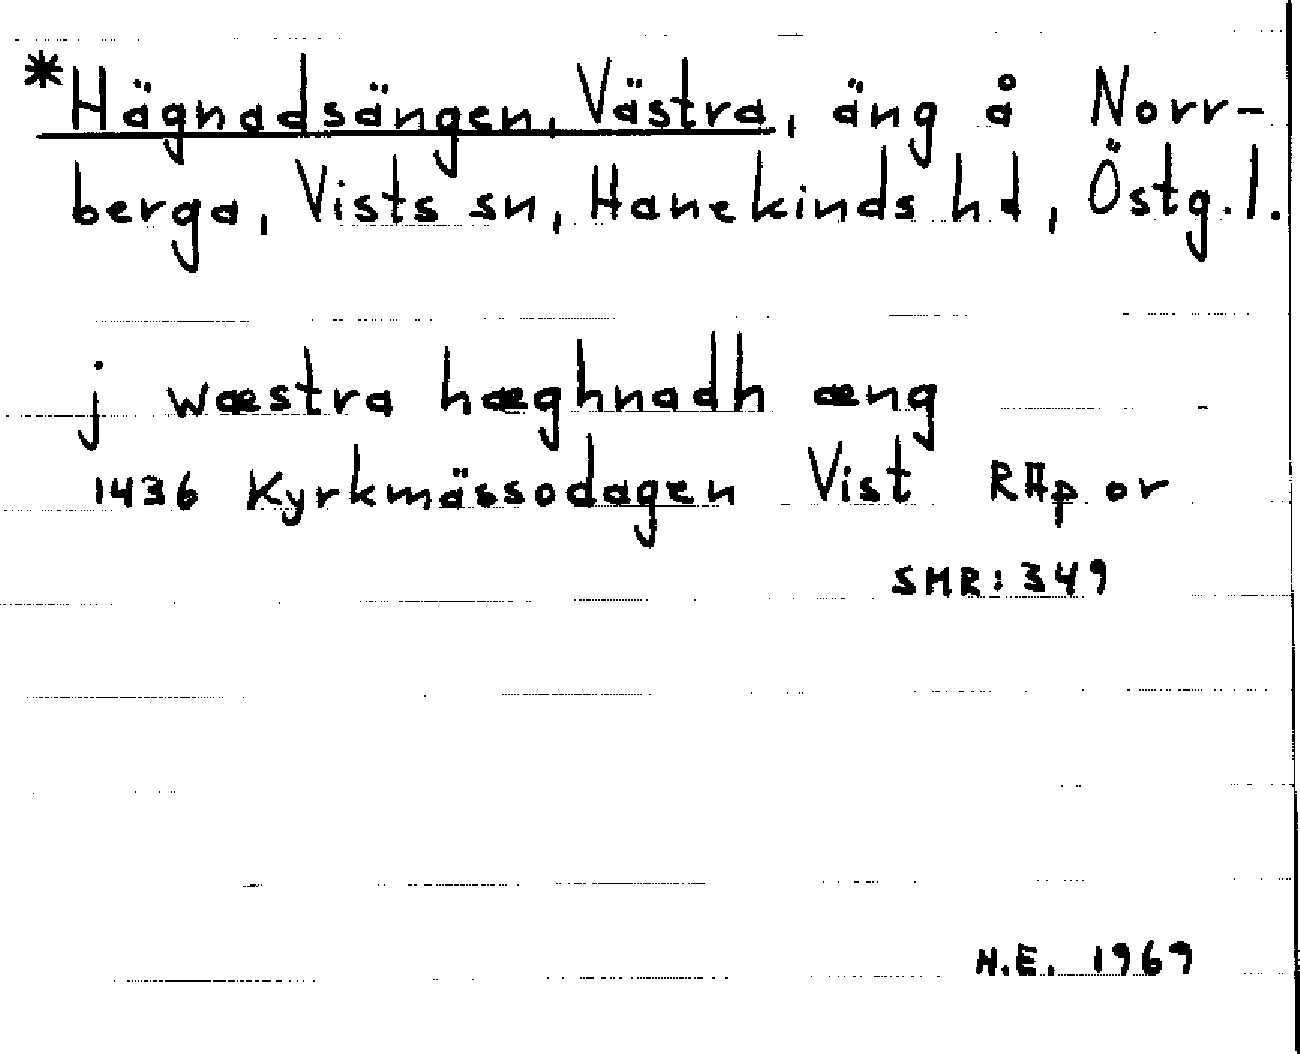 *Hägnadsängen, Västra, äng å Norr-
berga, Vists sn, Hanekinds hd, Östg.l.
j wæstra hæghnadh æng
1436 Kyrkmässodagen Vist RAp or
SMR: 349
H.E. 1969